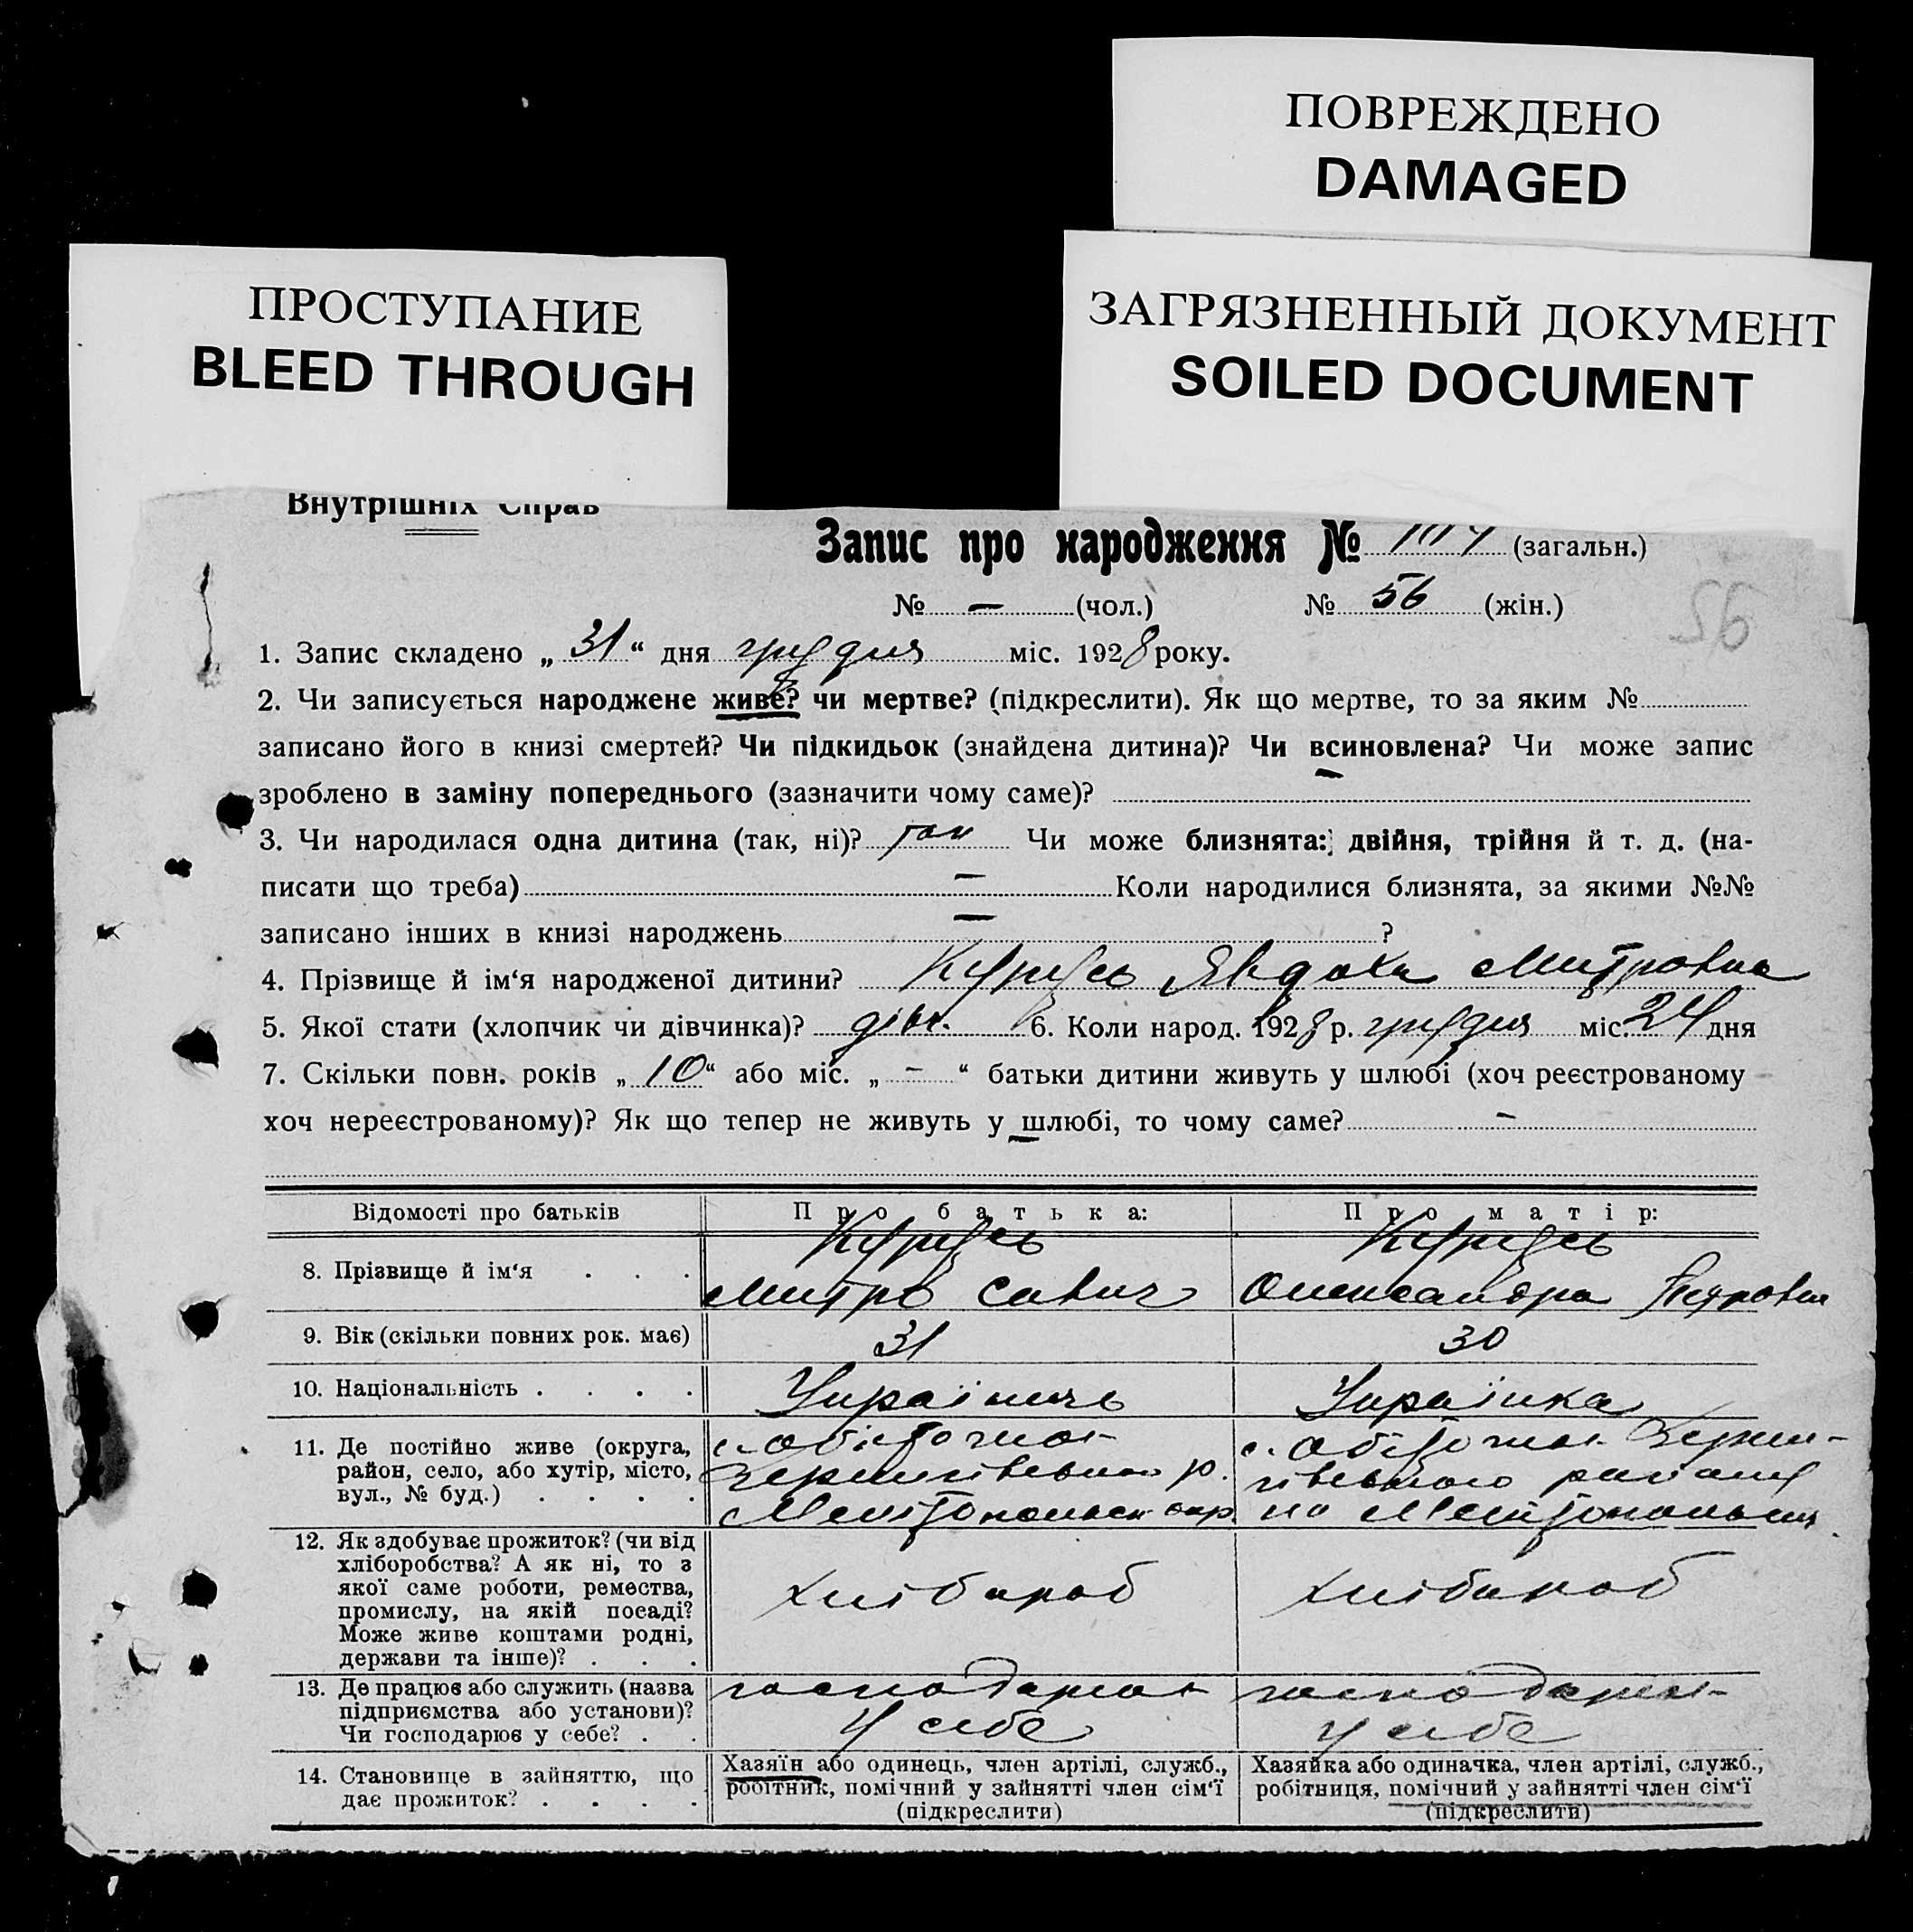 ПОВРЕЖДЕНО
DAMAGED
ПРОСТУПАНИЕ
BLEED THROUGH
ЗАГРЯЗНЕННЫЙ ДОКУМЕНТ
SOILED DOCUMENT
Внутрішніх Справ
Запис про народження № (загальн.)
№ — (чол.) № 56 (жін.)
56
1. Запис складено „31“ дня грудня міс. 1928 року.
2. Чи записується народжене живе? чи мертве? (підкреслити). Як що мертве, то за яким №
записано його в книзі смертей? Чи підкидьок (знайдена дитина)? Чи всиновлена? Чи може запис
зроблено в заміну попереднього (зазначити чому саме)?
3. Чи народилася одна дитина (так, ні)? так Чи може близнята: двійня, трійня й т. д. (на-
писати що треба) — Коли народилися близнята, за якими №№
записано інших в книзі народжень — ?
4. Прізвище й ім‘я народженої дитини? Курусь Явдоха Митровна
5. Якої стати (хлопчик чи дівчинка)? дівч. 6. Коли народ. 1928 р. грудня міс. 24 дня
7. Скільки повн. років „10“ або міс. „-“ батьки дитини живуть у шлюбі (хоч реєстрованому
хоч нереєстрованому)? Як що тепер не живуть у шлюбі, то чому саме? -
Відомості про батьків Про батька: Про матір:
8. Прізвище й ім‘я . . . Курусь Митро Савич Курусь Олександра Петровна
9. Вік (скільки повних рок. має) 31 30
10. Національність . . . . Українець Українка
11. Де постійно живе (округа, с. Обіточна с. Обіточна Черни-
район, село, або хутір, місто, Чернигівського р. гівського району
вул., № буд.) . . . . Мелітопольск окр. на Мелітопольщ.
12. Як здобуває прожиток? (чи від
хліборобства? А як ні, то з
якої саме роботи, ремества, хлібороб хлібороб
промислу, на якій посаді?
Може живе коштами родні,
держави та інше)? . . .
13. Де працює або служить (назва господарює господарює
підприємства або установи)?
Чи господарює у себе? . . у себе у себе
14. Становище в зайняттю, що Хазяїн або одинець, член артілі, служб., Хазяйка або одиначка, член артілі, служб.,
дає прожиток? . . . . робітник, помічний у зайнятті член сім‘ї робітниця, помічний у зайнятті член сім‘ї
(підкреслити) (підкреслити)